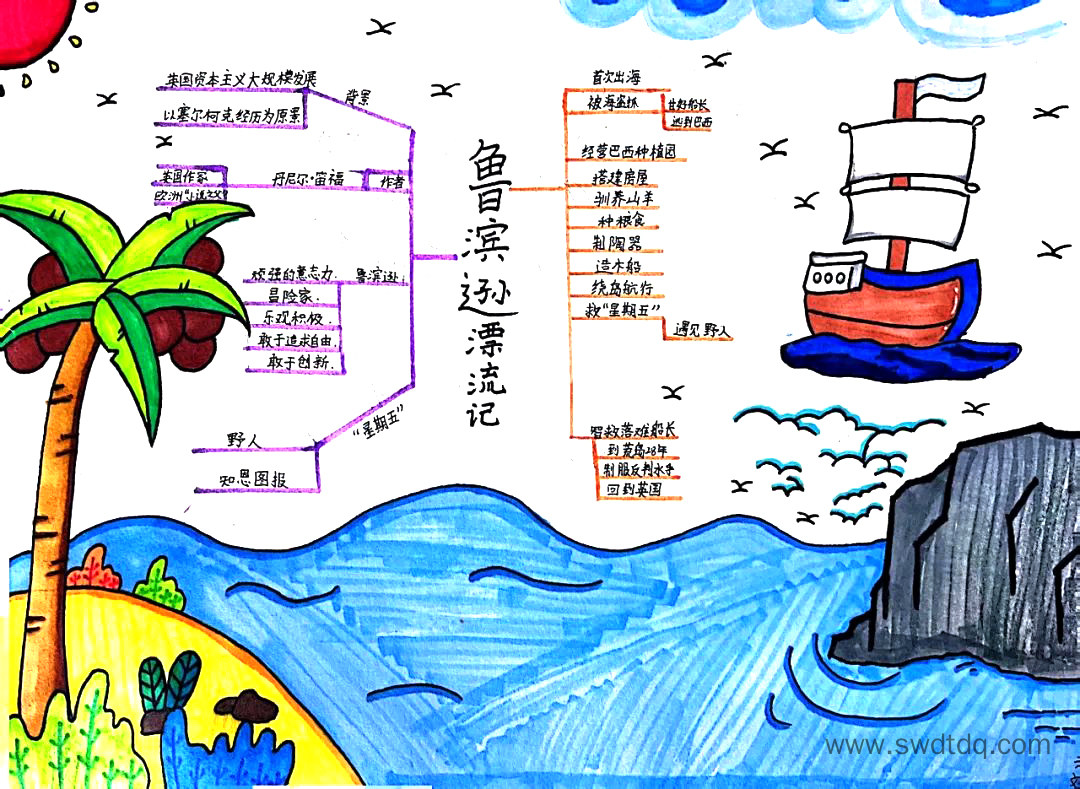 鲁
滨
逊
漂
流
记
英国资本主义大规模发展
背景
以塞尔柯克经历为原景
英国作家
丹尼尔·笛福
作者
欧洲“小说之父”
顽强的意志力
鲁滨逊
冒险家.
乐观积极.
敢于追求自由.
敢于创新.
“星期五”
野人
知恩图报
首次出海
被海盗抓
逃到巴西
经营巴西种植园
搭建房屋
驯养山羊
种粮食
制陶器
造木船
绕岛航行
救“星期五”
遇见野人
智救落难船长
到荒岛28年
制服反判水手
回到英国
www.swdtdq.com